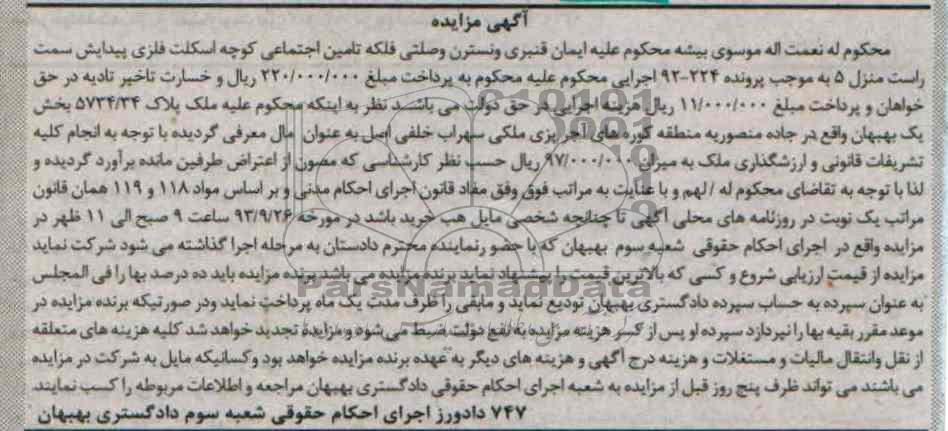 آگهی مزایده
محکوم له نعمت اله موسوی بیشه محکوم علیه ایمان قنبری ونسترن وصلتی فلکه تامین اجتماعی کوچه اسکلت فلزی پیدایش سمت
راست منزل ۵ به موجب پرونده ۲۲۴-۹۲ اجرایی محکوم علیه محکوم به پرداخت مبلغ ۲۲۰/۰۰۰/۰۰۰ ریال و خسارت تاخیر تادیه در حق
خواهان و پرداخت مبلغ ۱۱/۰۰۰/۰۰۰ ریال هزینه اجرایی در حق دولت می باشد نظر به اینکه محکوم علیه ملک پلاک ۵۷۳۴/۳۴ بخش
یک بهبهان واقع در جاده منصوریه منطقه کوره های آجر پزی ملکی سهراب خلفی اصل به عنوان مال معرفی گردیده با توجه به انجام کلیه
تشریفات قانونی و ارزشگذاری ملک به میزان ۹۷/۰۰۰/۰۰۰ ریال حسب نظر کارشناسی که مصون از اعتراض طرفین مانده برآورد گردیده و
لذا با توجه به تقاضای محکوم له / لهم و با عنایت به مراتب فوق وفق مفاد قانون اجرای احکام مدنی و بر اساس مواد ۱۱۸ و ۱۱۹ همان قانون
مراتب یک نوبت در روزنامه های محلی آگهی تا چنانچه شخصی مایل هب خرید باشد در مورخه ۹۳/۹/۲۶ ساعت ۹ صبح الی ۱۱ ظهر در
مزایده واقع در اجرای احکام حقوقی شعبه سوم بهبهان که با حضو رنماینده محترم دادستان به مرحله اجرا گذاشته می شود شرکت نماید
مزایده از قیمت ارزیابی شروع و کسی که بالاترین قیمت را پیشنهاد نماید برنده مزایده می باشد برنده مزایده باید ده درصد بها را فی المجلس
به عنوان سپرده به حساب سپرده دادگستری بهبهان تودیع نماید و مابقی را ظرف مدت یک ماه پرداخت نماید ودر صورتیکه برنده مزایده در
موعد مقرر بقیه بها را نپردازد سپرده او پس از کسر هزینه مزایده به نفع دولت ضبط می شود و مزایده تجدید خواهد شد کلیه هزینه های متعلقه
از نقل وانتقال مالیات و مستغلات و هزینه درج آگهی و هزینه های دیگر به عهده برنده مزایده خواهد بود وکسانیکه مایل به شرکت در مزایده
می باشند می تواند ظرف پنج روز قبل از مزایده به شعبه اجرای احکام حقوقی دادگستری بهبهان مراجعه و اطلاعات مربوطه را کسب نمایند.
۷۴۷ دادورز اجرای احکام حقوقی شعبه سوم دادگستری بهبهان
ParsNamadData